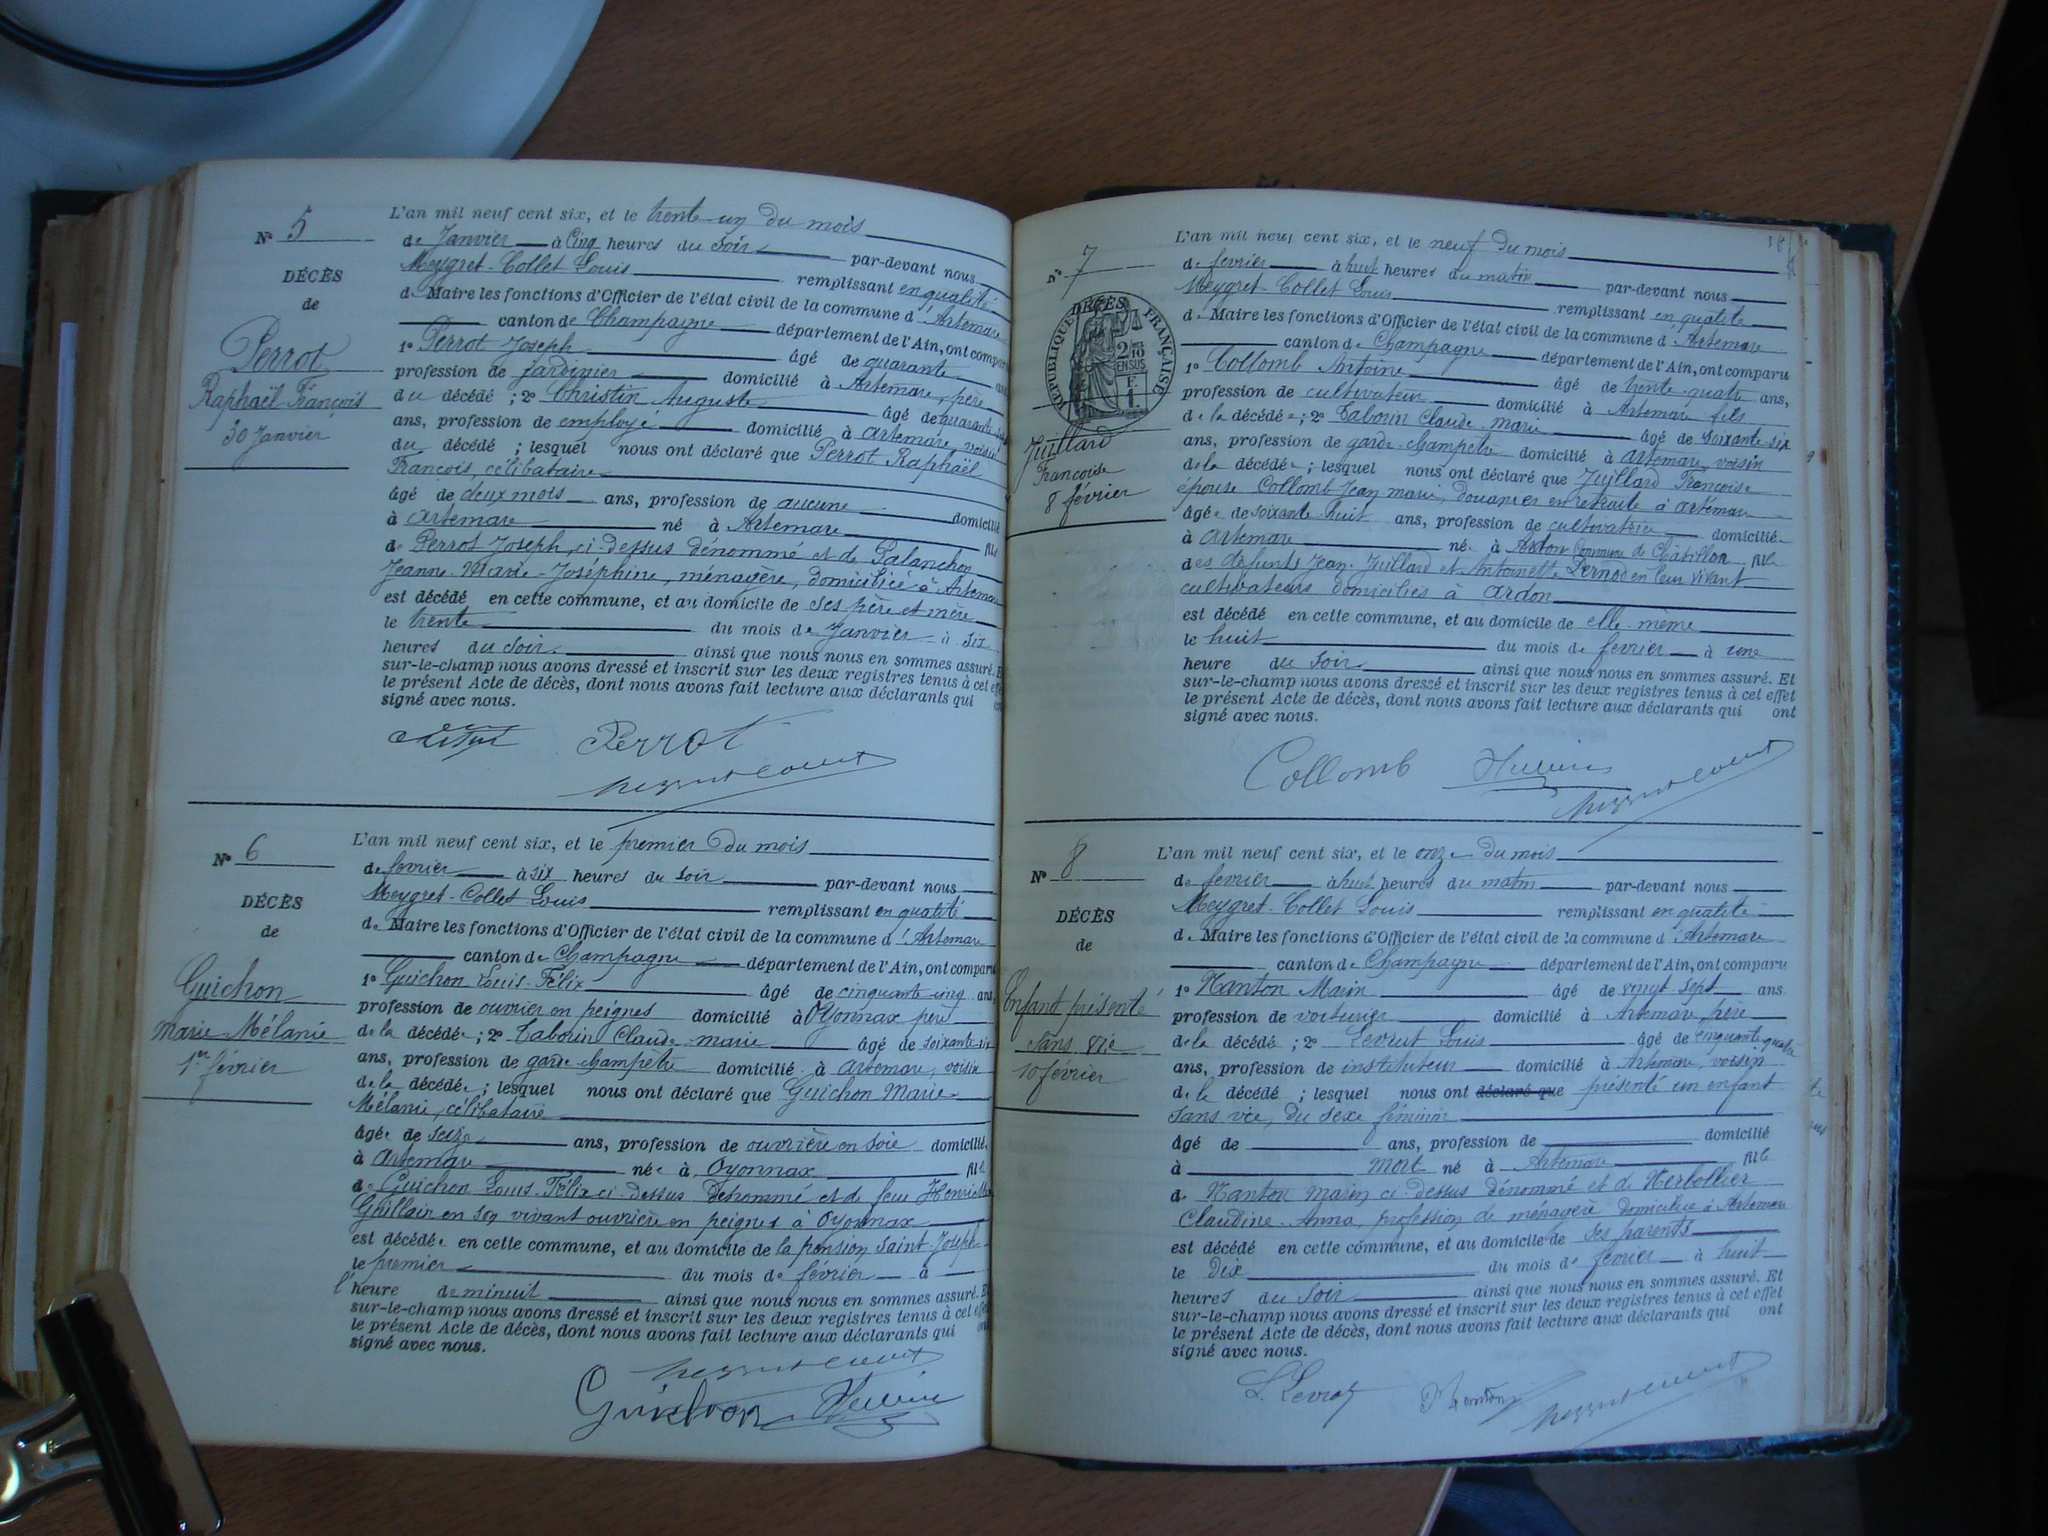 N° 5
DÉCÈS
de
Perrot
Raphaël François
30 Janvier
L'an mil neuf cent six, et le trente un du mois
de Janvier à cinq heures du soir par-devant nous
Meygret-Collet Louis remplissant en qualité
de Maire les fonctions d'Officier de l'état civil de la commune d'Artemare
canton de Champagne département de l'Ain, ont comparu
1° Perrot Joseph âgé de quarante ans
profession de jardinier domicilié à Artemare, père
du décédé ; 2° Christin Auguste âgé de quarante
ans, profession de employé domicilié à Artemare, voisin
du décédé ; lesquel nous ont déclaré que Perrot Raphaël
François, célibataire
âgé de deux mois ans, profession de aucune domicilié
à Artemare né à Artemare fils
de Perrot Joseph, ci-dessus dénommé et de Palanchon
Jeanne-Marie-Joséphine, ménagère, domiciliée à Artemare
est décédé en cette commune, et au domicile de ses père et mère
le trente du mois de Janvier à six
heures du soir ainsi que nous nous en sommes assuré. Et
sur-le-champ nous avons dressé et inscrit sur les deux registres tenus à cet effet
le présent Acte de décès, dont nous avons fait lecture aux déclarants qui ont
signé avec nous.
Perrot
N° 6
DÉCÈS
de
Guichon
Marie Mélanie
1er février
L'an mil neuf cent six, et le premier du mois
de fevrier à six heures du soir par-devant nous
Meygret-Collet Louis remplissant en qualité
de Maire les fonctions d'Officier de l'état civil de la commune d'Artemare
canton de Champagne département de l'Ain, ont comparu
1° Guichon Louis-Félix âgé de cinquante cinq ans,
profession de ouvrier en peignes domicilié à Oyonnax père
de la décédée ; 2° Tabouin Claude-marie âgé de soixante six
ans, profession de garde champêtre domicilié à Artemare, voisin
de la décédée ; lesquel nous ont déclaré que Guichon Marie
Mélanie, célibataire
âgée de seize ans, profession de ouvrière en soie domiciliée
à Artemare née à Oyonnax fille
de Guichon Louis-Félix ci-dessus dénommé et de feue Henriette
Guillain en son vivant ouvrière en peignes à Oyonnax
est décédée en cette commune, et au domicile de la pension Saint-Joseph
le premier du mois de février à
l'heure de minuit ainsi que nous nous en sommes assuré. Et
sur-le-champ nous avons dressé et inscrit sur les deux registres tenus à cet effet
le présent Acte de décès, dont nous avons fait lecture aux déclarants qui ont
signé avec nous.
Guichon
N° 7
DÉCÈS
RÉPUBLIQUE FRANÇAISE
2/10
EN SUS
F.
1.
Juillard
Françoise
8 février
L'an mil neuf cent six, et le neuf du mois
de fevrier à huit heures du matin par-devant nous
Meygret-Collet Louis remplissant en qualité
de Maire les fonctions d'Officier de l'état civil de la commune d'Artemare
canton de Champagne département de l'Ain, ont comparu
1° Collomb Antoine âgé de trente quatre ans,
profession de cultivateur domicilié à Artemare fils
de la décédée ; 2° Tabouin Claude-marie âgé de soixante-six
ans, profession de garde-champêtre domicilié à Artemare, voisin
de la décédée ; lesquel nous ont déclaré que Juillard Françoise
épouse Collomb Jean marie, douanier en retraite à Artemare
âgée de soixante-huit ans, profession de cultivatrice domiciliée
à Artemare née à Ardon commune de Châtillon fille
des défunts Jean Juillard et Antoinette Pernod en leur vivant
cultivateurs domiciliés à Ardon
est décédé en cette commune, et au domicile de elle-même
le huit du mois de fevrier à une
heure du soir ainsi que nous nous en sommes assuré. Et
sur-le-champ nous avons dressé et inscrit sur les deux registres tenus à cet effet
le présent Acte de décès, dont nous avons fait lecture aux déclarants qui ont
signé avec nous.
Collomb
N° 8
DÉCÈS
de
Enfant présenté
sans vie
10 fevrier
L'an mil neuf cent six, et le onze du mois
de fevrier à huit heures du matin par-devant nous
Meygret-Collet Louis remplissant en qualité
de Maire les fonctions d'Officier de l'état civil de la commune d'Artemare
canton de Champagne département de l'Ain, ont comparu
1° Nanton Marin âgé de vingt sept ans
profession de voiturier domicilié à Artemare père
de la décédé ; 2° Levrat Louis âgé de cinquante quatre
ans, profession de instituteur domicilié à Artemare, voisin
de le décédé ; lesquel nous ont déclaré que présenté un enfant
sans vie, du sexe féminin
âgé de ans, profession de domicilié
à mort né à Artemare fille
de Nanton Marin ci-dessus dénommé et de Herbollier
Claudine-Anna, profession de ménagère domiciliée à Artemare
est décédé en cette commune, et au domicile de ses parents
le dix du mois de fevrier à huit
heures du soir ainsi que nous nous en sommes assuré. Et
sur-le-champ nous avons dressé et inscrit sur les deux registres tenus à cet effet
le présent Acte de décès, dont nous avons fait lecture aux déclarants qui ont
signé avec nous.
L. Levrat